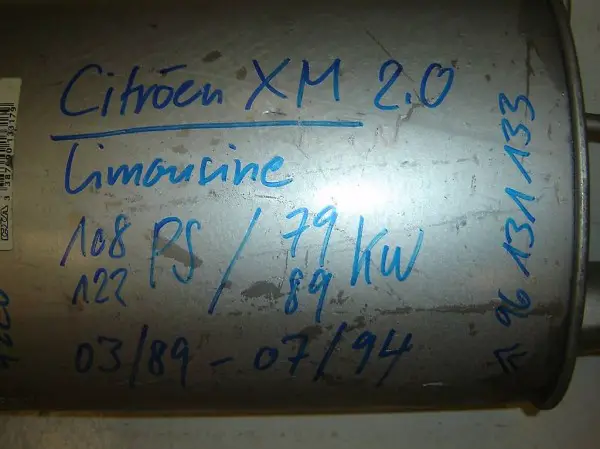 Citröen XM 2.0
Limousine
108 PS / 79 KW
122 89
03/89 - 07/94
96 131 133